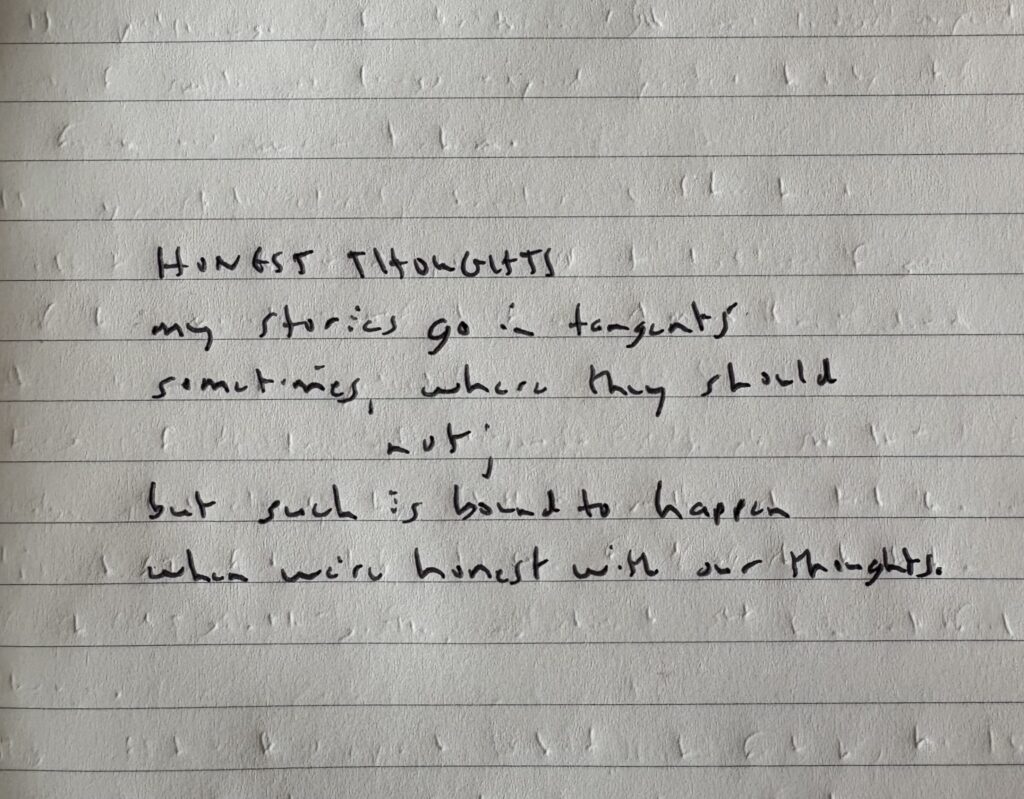 HONEST THOUGHTS
my stories go in tangents
sometimes, where they should
not;
but such is bound to happen
when we're honest with our thoughts.